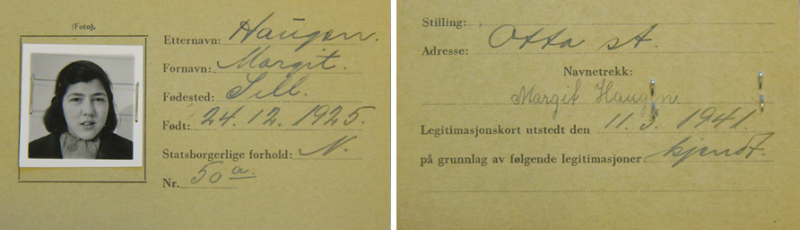 (Foto).
Etternavn: Haugen.
Fornavn: Margit.
Fødested: Sell.
Født: 24.12.1925.
Statsborgerlige forhold: N.
Nr. 50 a.
Stilling:
Adresse: Otta st.
Navnetrekk:
Margit Haugen.
Legitimasjonskort utstedt den 11.3.1941.
på grunnlag av følgende legitimasjoner kjendt.